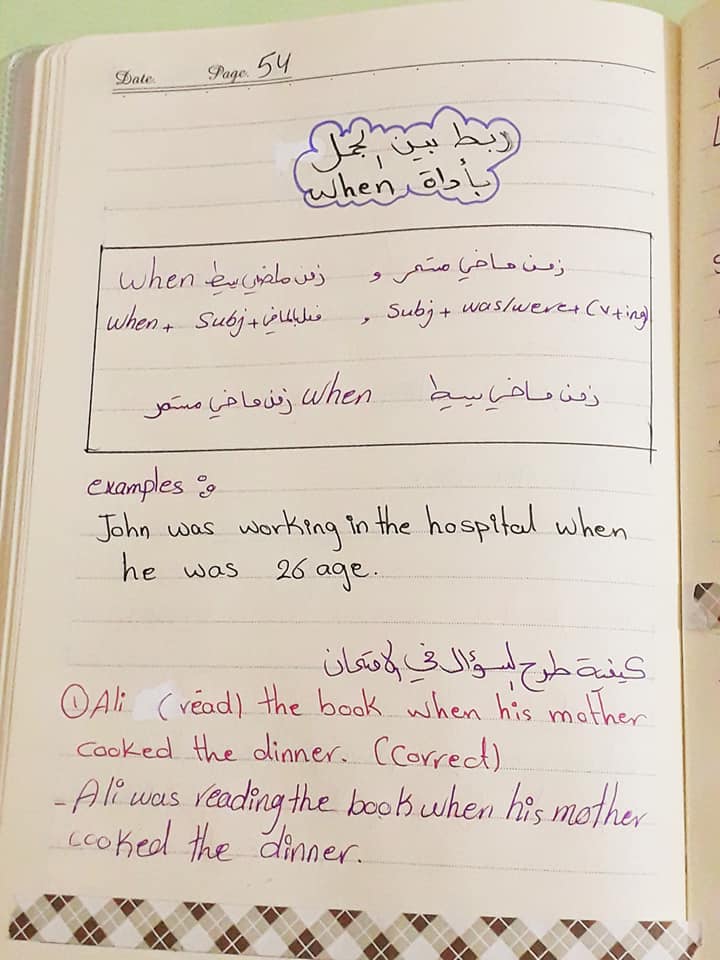 Date. Page. 54
ربط بين الجمل
بأداة when
When زمن ماضي بسيط و زمن ماضي مستمر
when + Subj + فعل بالماضي , Subj + was/were + (v+ing)
زمن ماضي مستمر when زمن ماضي بسيط
examples :
John was working in the hospital when
he was 26 age.
كيفية طرح السؤال في الامتحان
① Ali (read) the book when his mother
cooked the dinner. (Correct)
- Ali was reading the book when his mother
cooked the dinner.